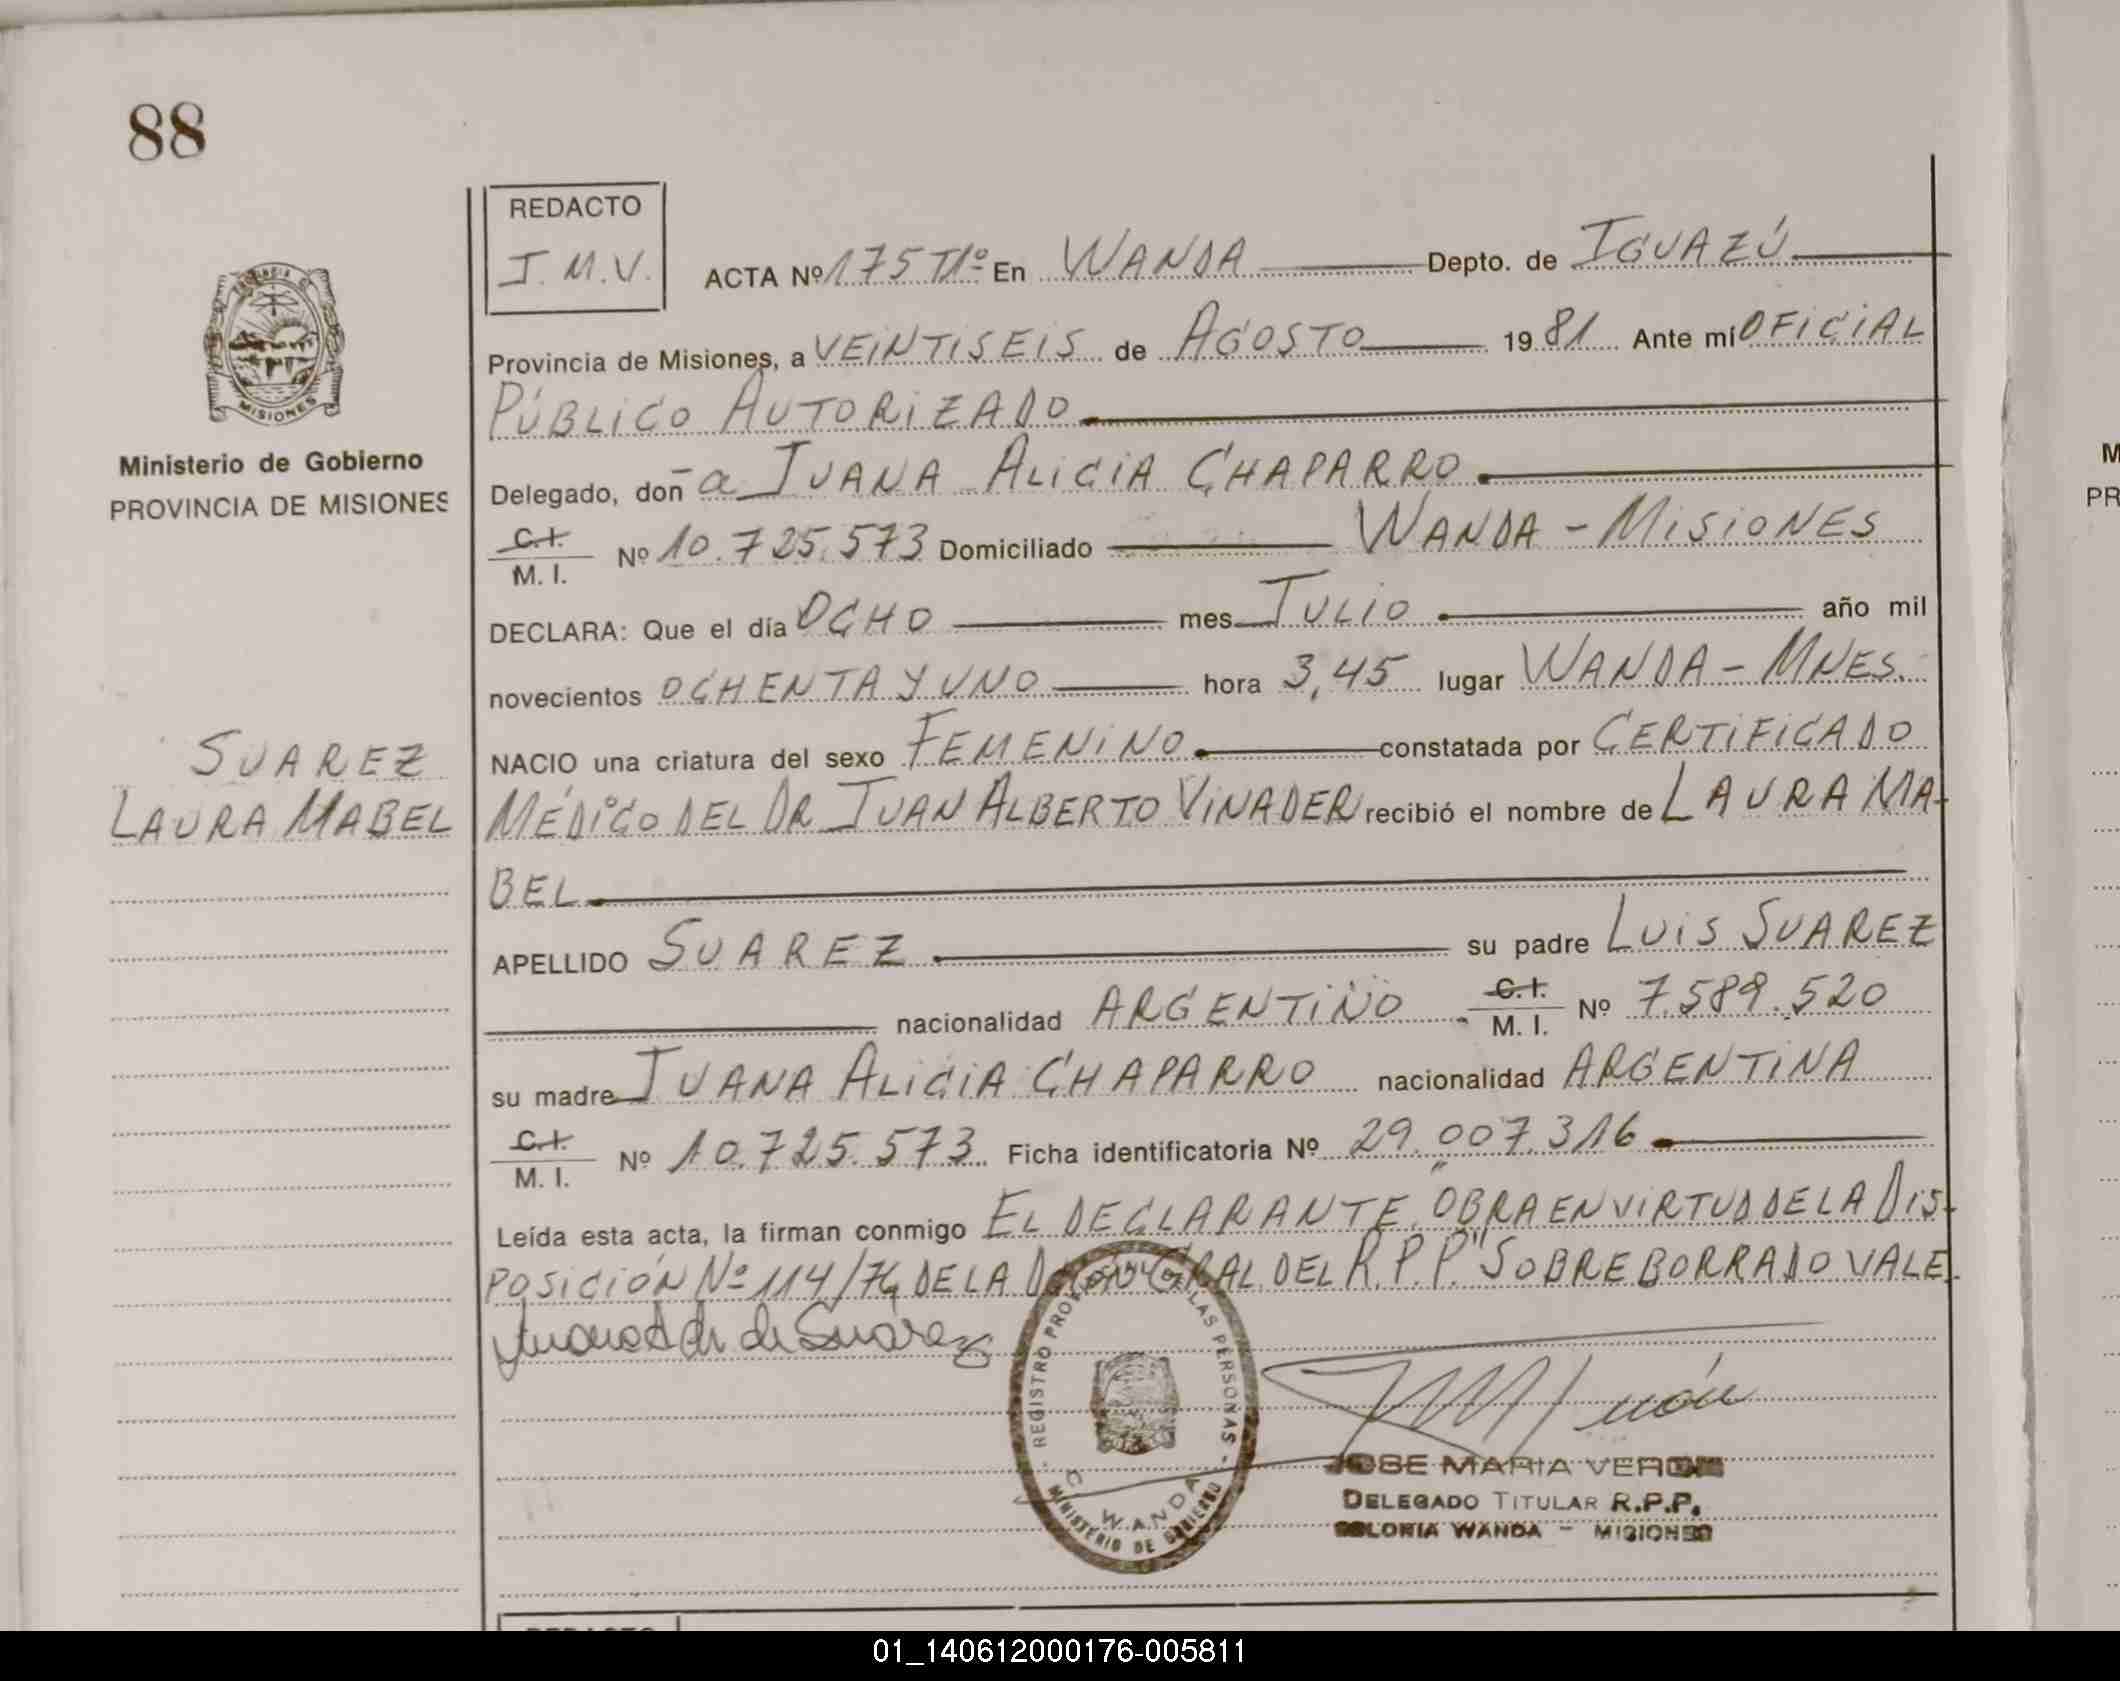 88
REDACTO
J. M. V.
ACTA Nº 175 Tº1º En WANDA Depto. de IGUAZÚ
Provincia de Misiones, a VEINTISEIS de AGOSTO 19 81 Ante mí OFICIAL
PÚBLICO AUTORIZADO
Delegado, don-a JUANA ALICIA CHAPARRO
C.I.
M. I. Nº 10.725.573 Domiciliado WANDA - MISIONES
DECLARA: Que el día OCHO mes JULIO año mil
novecientos OCHENTA Y UNO hora 3,45 lugar WANDA - MNES.
NACIO una criatura del sexo FEMENINO constatada por CERTIFICADO
MÉDICO DEL DR JUAN ALBERTO VINADER recibió el nombre de LAURA MA-
BEL
APELLIDO SUAREZ su padre LUIS SUAREZ
nacionalidad ARGENTINO C.I. M. I. Nº 7.589.520
su madre JUANA ALICIA CHAPARRO nacionalidad ARGENTINA
C.I.
M. I. Nº 10.725.573 Ficha identificatoria Nº 29.007.316
Leída esta acta, la firman conmigo EL DECLARANTE "OBRA EN VIRTUD DE LA DIS-
POSICIÓN Nº 114/74 DE LA GRAL DEL R.P.P." SOBREBORRADO VALE.
de Suarez
REGISTRO PROVINCIAL DE LAS PERSONAS
WANDA
MINISTERIO DE GOBIERNO
JOSE MARIA VERON
DELEGADO TITULAR R.P.P.
COLONIA WANDA - MISIONES
PROVINCIA
MISIONES
Ministerio de Gobierno
PROVINCIA DE MISIONES
SUAREZ
LAURA MABEL
M
PR
01_140612000176-005811